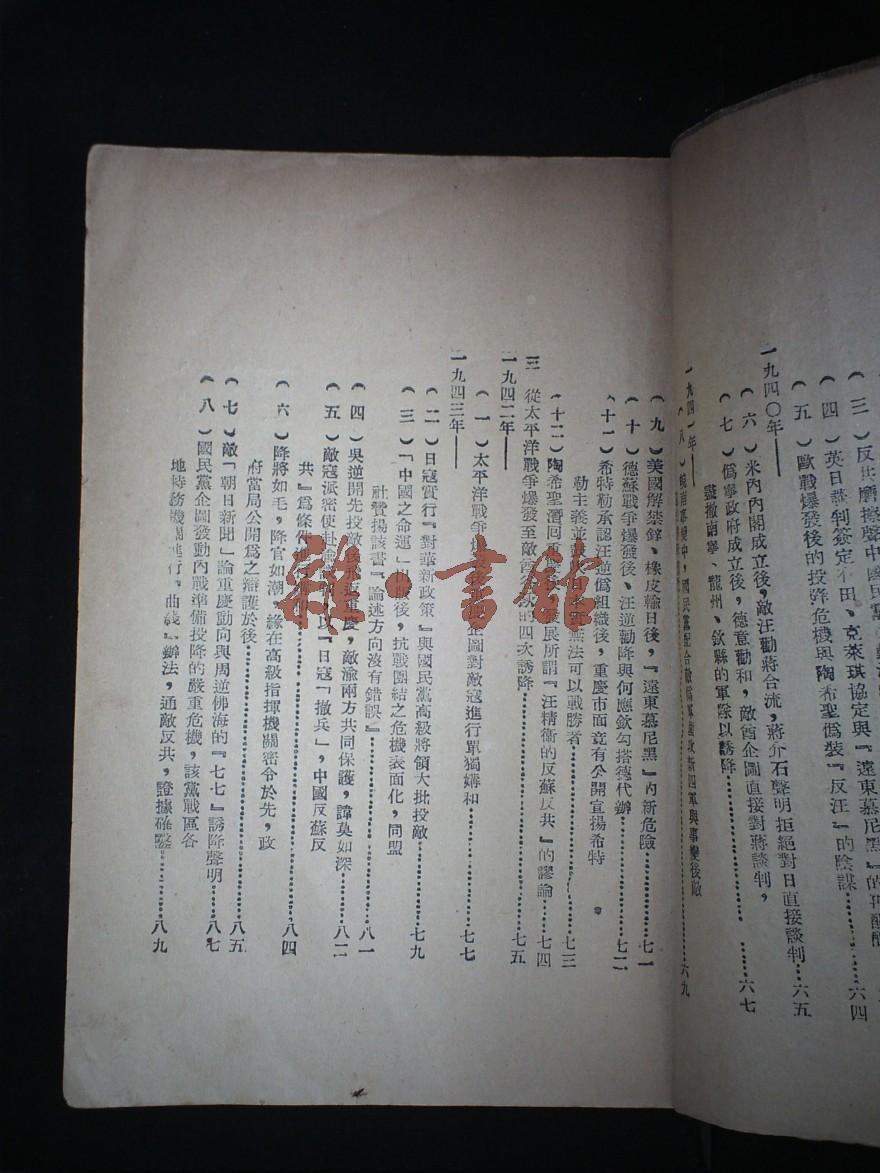 （三）反共摩擦聲中國民黨
（四）英日談判簽定有田、克萊琪協定與『遠東慕尼黑』的再醞釀……六四
（五）歐戰爆發後的投降危機與陶希聖僞裝『反汪』的陰謀
一九四〇年——
（六）米內內閣成立後，敵汪勸蔣合流，蔣介石聲明拒絕對日直接談判…六五
（七）僞寧政府成立後，德意勸和，敵酋企圖直接對蔣談判，
盡撤南寧、龍州、欽縣的軍隊以誘降……六七
一九四一年——
（八）皖南事變中，國民黨配合敵僞軍
新四軍與事變後敵
……六九
（九）美國解禁鎢、橡皮輸日後，『遠東慕尼黑』的新危險……七一
（十）德蘇戰爭爆發後，汪逆勸降與何應欽勾搭德代辦……七二
（十一）希特勒承認汪逆僞組織後，重慶市面竟有公開宣揚希特
勒主義並
無法可以戰勝者……七三
（十二）陶希聖潛回重慶後
所謂『汪精衞的反蘇反共』的謬論……七四
三 從太平洋戰爭爆發至敵酋
的四次誘降……七五
一九四二年——
（一）太平洋戰爭爆發後
企圖對敵寇進行單獨媾和……七七
一九四三年——
（二）日寇實行『對華新政策』與國民黨高級將領大批投敵
（三）「中國之命運」出版後，抗戰團結之危機表面化，同盟……七九
社贊揚該書『論述方向沒有錯誤』
（四）吳逆開先投敵後飛返重慶，敵渝兩方共同保護，諱莫如深……八一
（五）敵寇派密使赴
以『日寇「撤兵」，中國反蘇反……八二
共』爲條件
（六）降將如毛，降官如潮，緣在高級指揮機關密令於先，政
府當局公開爲之辯護於後……八四
（七）敵「朝日新聞」論重慶動向與周逆佛海的『七七』誘降聲明……八五
（八）國民黨企圖發動內戰準備投降的嚴重危機，該黨戰區各……八七
地特務機關進行『曲綫』辦法，通敵反共，證據確鑿……八九
雜·書館